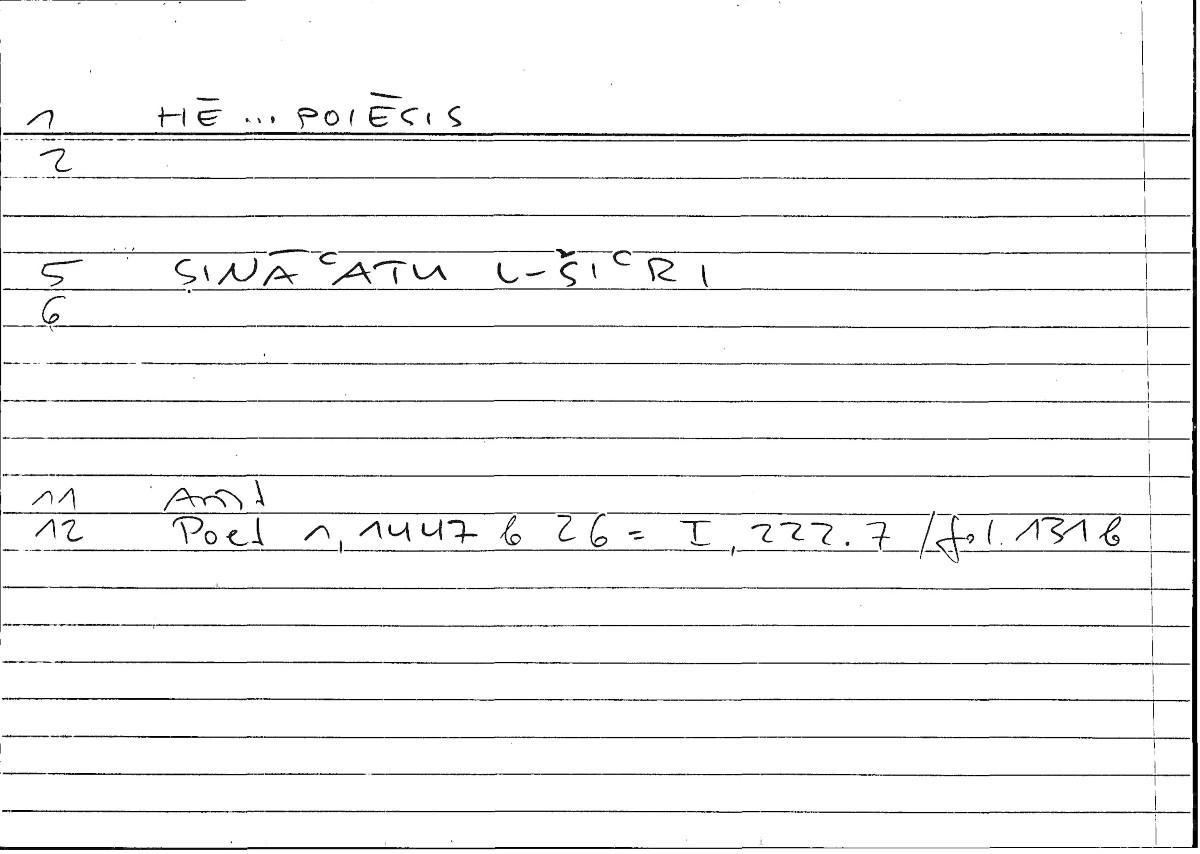 1 HĒ ... POIĒSIS
2
5 ṢINĀʿATU L-ŠIʿRI
6
11 Arist
12 Poet 1, 1447 b 26 = I, 222.7 / fol. 131 b